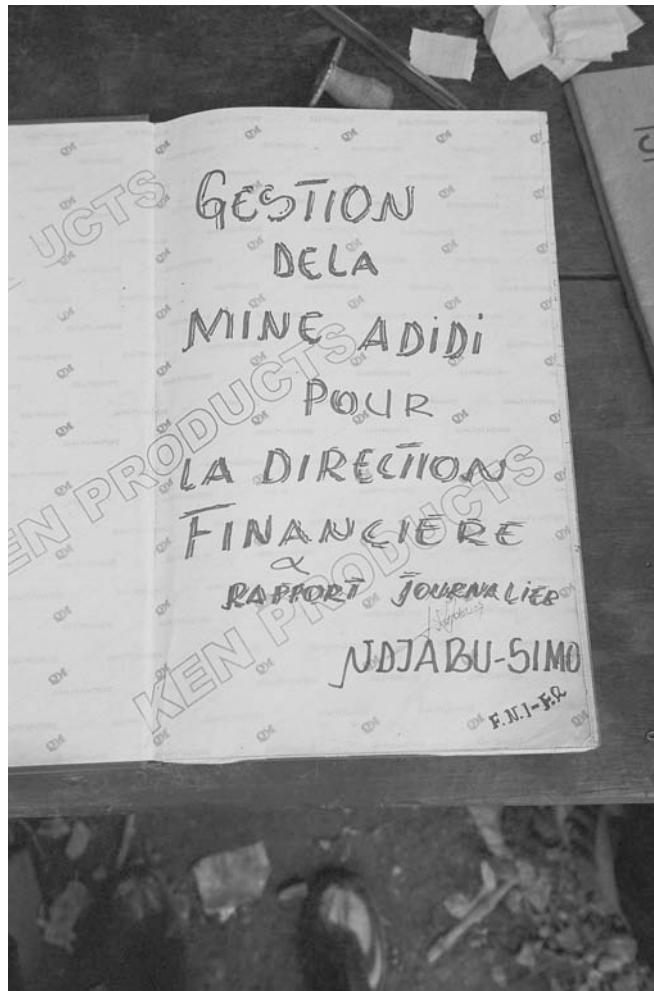 GESTION
DELA
MINE ADiDi
POUR
LA DIRECTION
FINANCIERE
&
RAPPORT JOURNALIER
NDJABU-SIMO
F.N.I-F.R
UCTS
KEN PRODUCTS
KEN PRODUCTS